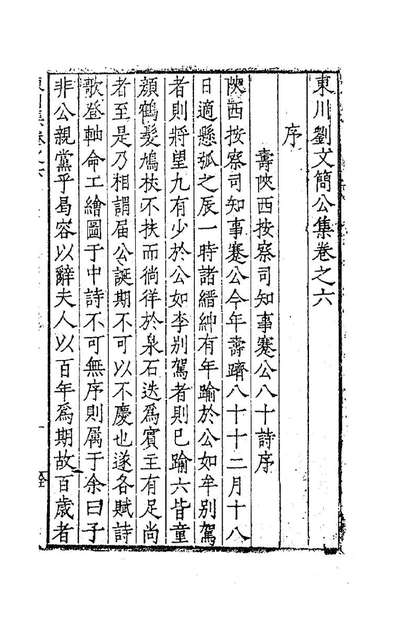 東川劉文簡公集卷之六
序
壽陝西按察司知事蹇公八十詩序
陝西按察司知事蹇公今年壽躋八十十二月十八
日適懸弧之辰一時諸縉紳有年踰於公如牟别駕
者則將望九有少於公如李别駕者則已踰六皆童
顔鶴髮鳩扙不扶而徜徉於泉石迭爲賓主有足尚
者至是乃相謂届公誕期不可以不慶也遂各賦詩
歌登軸命工繪圖于中詩不可無序則属于余曰子
非公親黨乎曷容以辭夫人以百年爲期故百歳者